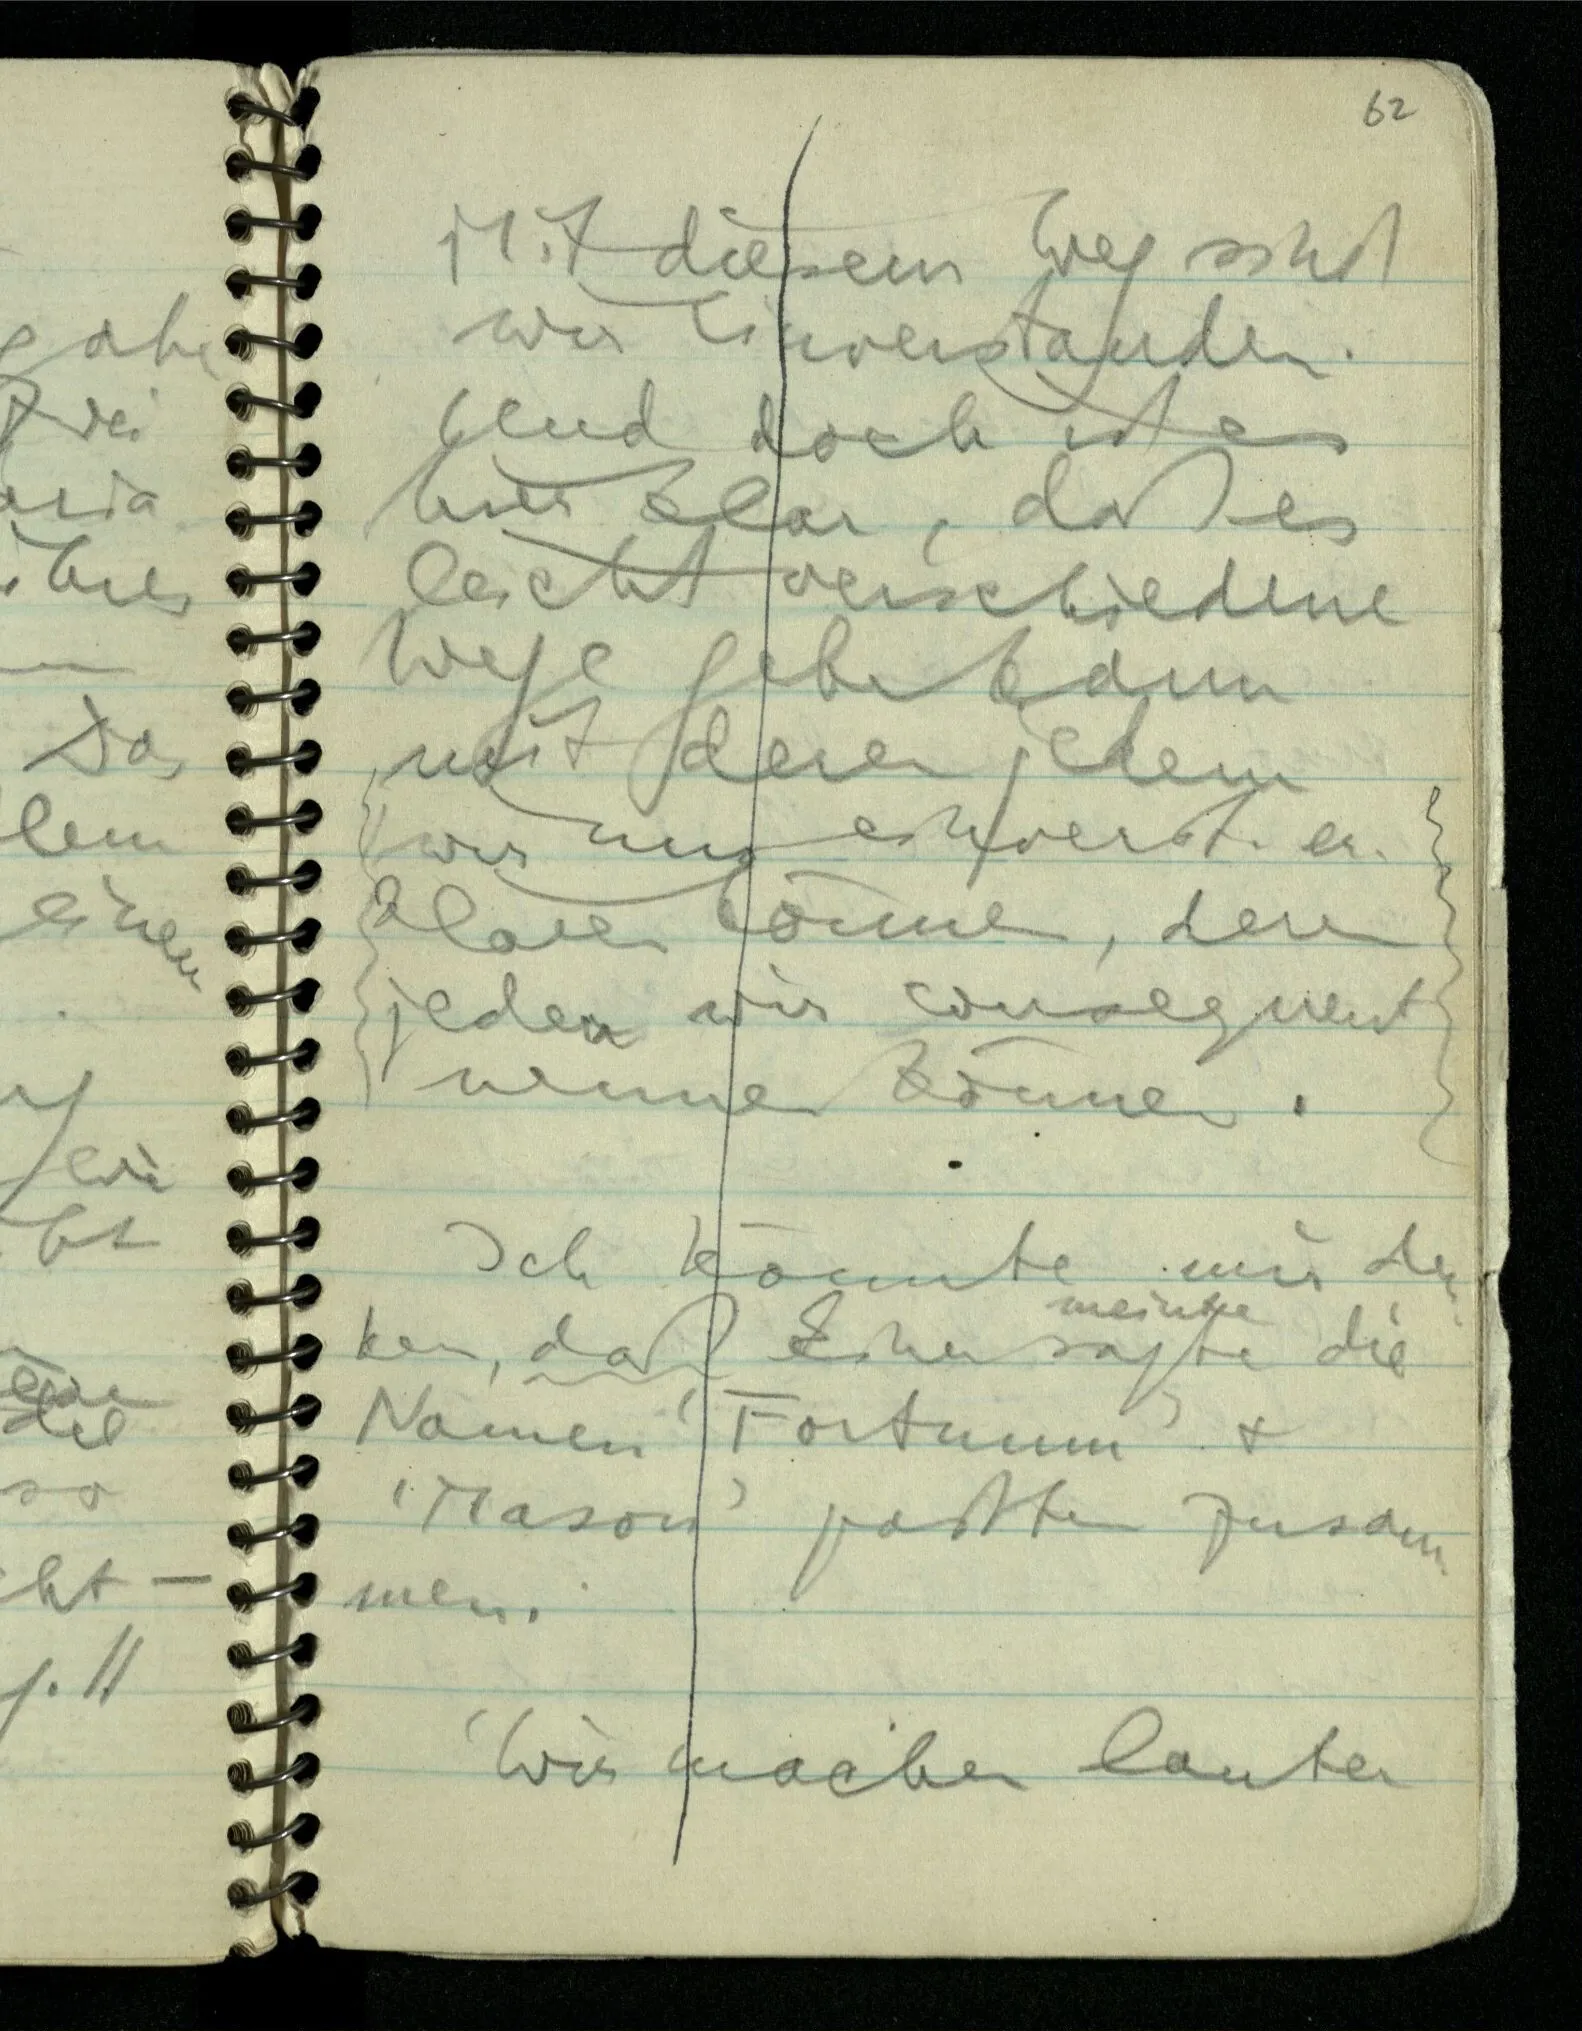 62
Mit diesem Weg sind
wir einverstanden.
Und doch ist es
hier klar, daß es
leicht verschiedene
Wege geben kann
mit deren jedem
wir uns einverst. er-
klären können, deren
jeden wir consequent
nennen können.
Ich könnte mir den
ken, daß Einer sagte die
meinte
Namen 'Fortnum' +
'Mason' paßten zusam
men.
'Wir machen lauter
gabe
zwei
Da
blem
einen
wie
eine
die
so